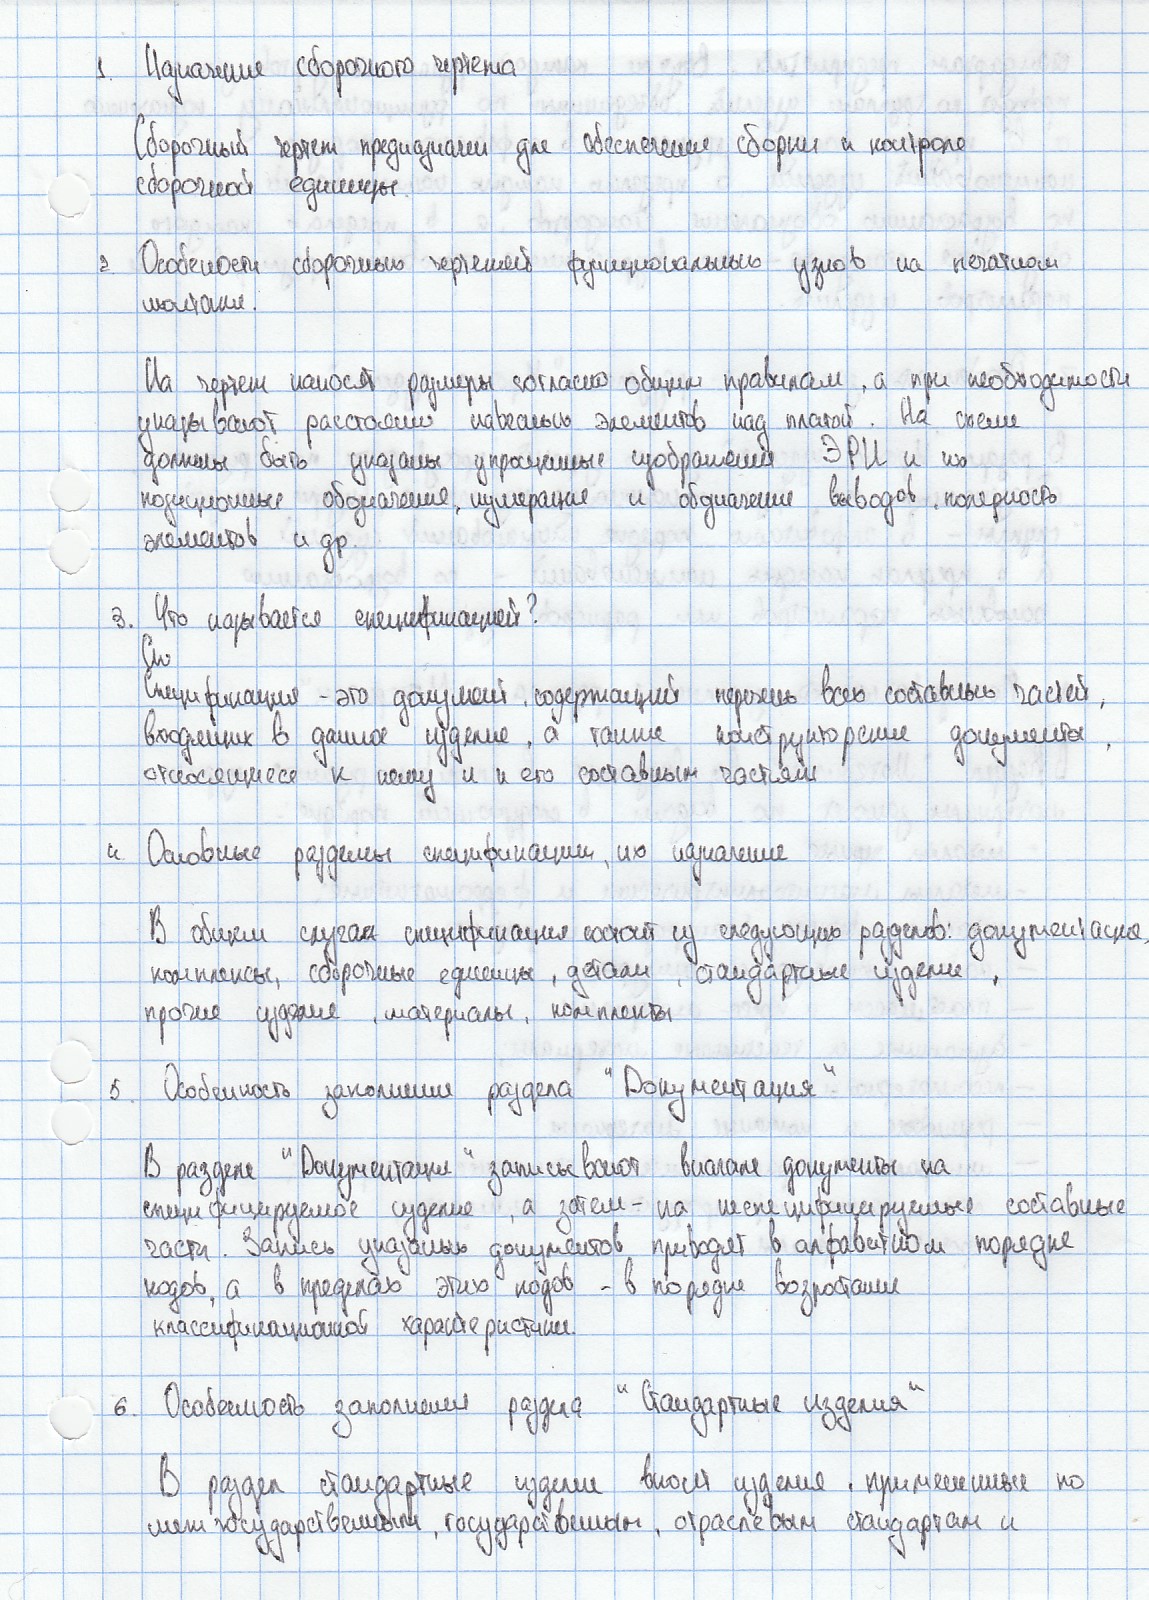 1. Назначение сборочного чертежа
Сборочный чертеж предназначен для обеспечения сборки и контроля
сборочной единицы.
2. Особенности сборочных чертежей функциональных узлов на печатном
монтаже.
На чертеж наносят размеры согласно общим правилам, а при необходимости
указывают расстояние навесных элементов над платой. На схеме
должны быть указаны упрощенные изображения ЭРИ и их
позиционные обозначения, нумерация и обозначение выводов, полярность
элементов и др.
3. Что называется спецификацией?
Спецификация - это документ, содержащий перечень всех составных частей,
входящих в данное изделие, а также конструкторские документы,
относящиеся к нему и к его составным частям
4. Основные разделы спецификации, их назначение
В общем случае спецификация состоит из следующих разделов: документация,
комплексы, сборочные единицы, детали, стандартные изделия,
прочие изделия, материалы, комплекты
5. Особенность заполнения раздела "Документация"
В разделе "Документация" записывают вначале документы на
специфицируемое изделие, а затем - на неспецифицируемые составные
части. Запись указанных документов приводят в алфавитном порядке
кодов, а в пределах этих кодов - в порядке возрастания
классификационной характеристики.
6. Особенность заполнения раздела "Стандартные изделия"
В раздел стандартные изделия вносят изделия, примененные по
межгосударственным, государственным, отраслевым стандартам и